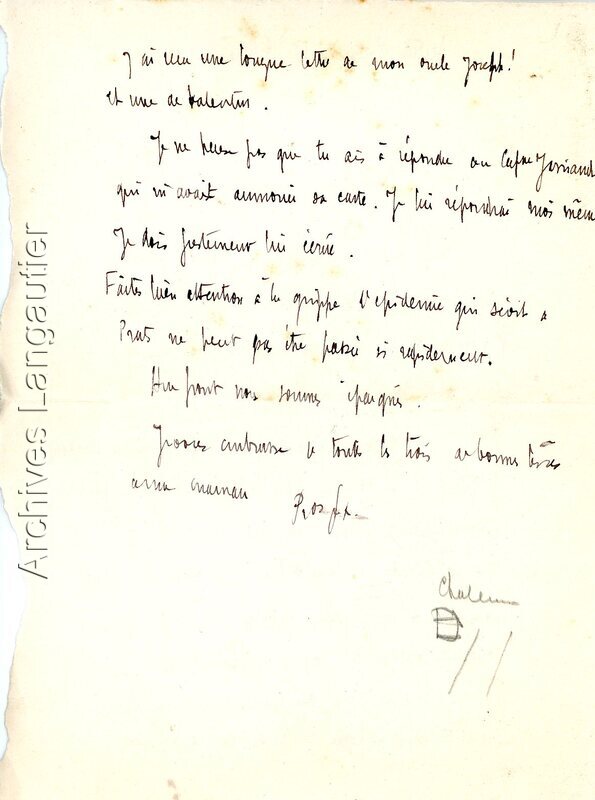 J'ai reçu une longue lettre de mon oncle Joseph!
et une de Valentin.
Je ne pense pas que tu ais à répondre au Capne
qui m'avait annoncé sa carte. Je lui répondrai moi même
Je dois justement lui écrire.
Faites bien attention à la grippe l'epidemie qui sévit à
Prats ne peut pas être passée si rapidement.
Au front nous sommes épargnés.
Je vous embrasse toutes les trois de bonnes
à ma maman
Archives Langautier